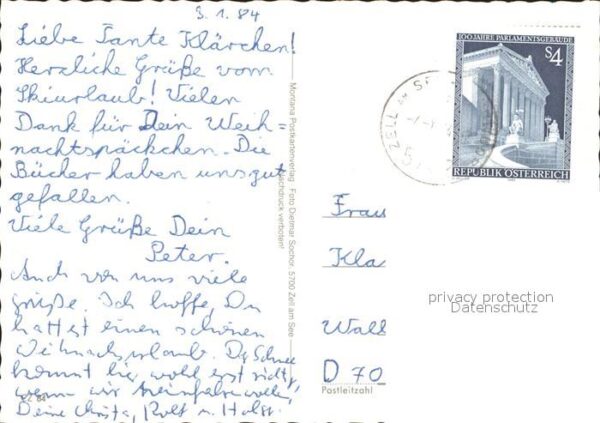 3.1.84
Liebe Tante Klärchen!
Herzliche Grüße vom
Skiurlaub! Vielen
Dank für Dein Weih=
nachtspäckchen. Die
Bücher haben uns gut
gefallen.
Viele Grüße Dein
Peter.
Auch von uns viele
Grüße. Ich hoffe, Du
hattest einen schönen
Weihnachtsurlaub. Der Schnee
kommt hier wohl erst richtig,
wenn wir heimfahren wollen,
Deine Christa, Rolf u.
Montana Postkartenverlag Foto Dietmar Sochor, 5700 Zell am See
Nachdruck verboten!
100 JAHRE PARLAMENTSGEBÄUDE
S4
REPUBLIK ÖSTERREICH
ZELL AM SEE
Frau
Kla
privacy protection
Datenschutz
Wall
D 70
Postleitzahl